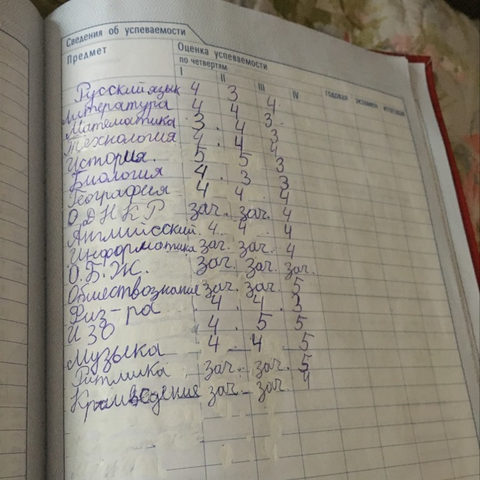 Сведения об успеваемости
Предмет
Оценка успеваемости
по четвертям
I II III IV годовая экзамен итоговая
Русский язык 4 3 4
Литература 4 4 4
Математика 3 4 3
Технология 4 4 3
История 5 5 4
Биология 4 3 3
География 4 4 3
ОДНКР зач. зач. 4
Английский 4 4 4
Информатика зач. зач. 4
О.Б.Ж. зач. зач. зач.
Обществознание зач. зач. 5
Физ-ра 4 4 3
ИЗО 4 5 5
Музыка 4 4 5
Ритмика зач. зач. 5
зач. зач 4